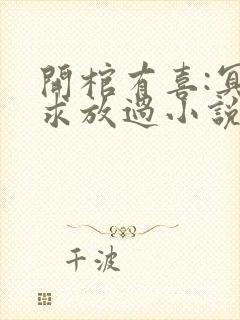 開棺有喜:冥
求放過小說
千波